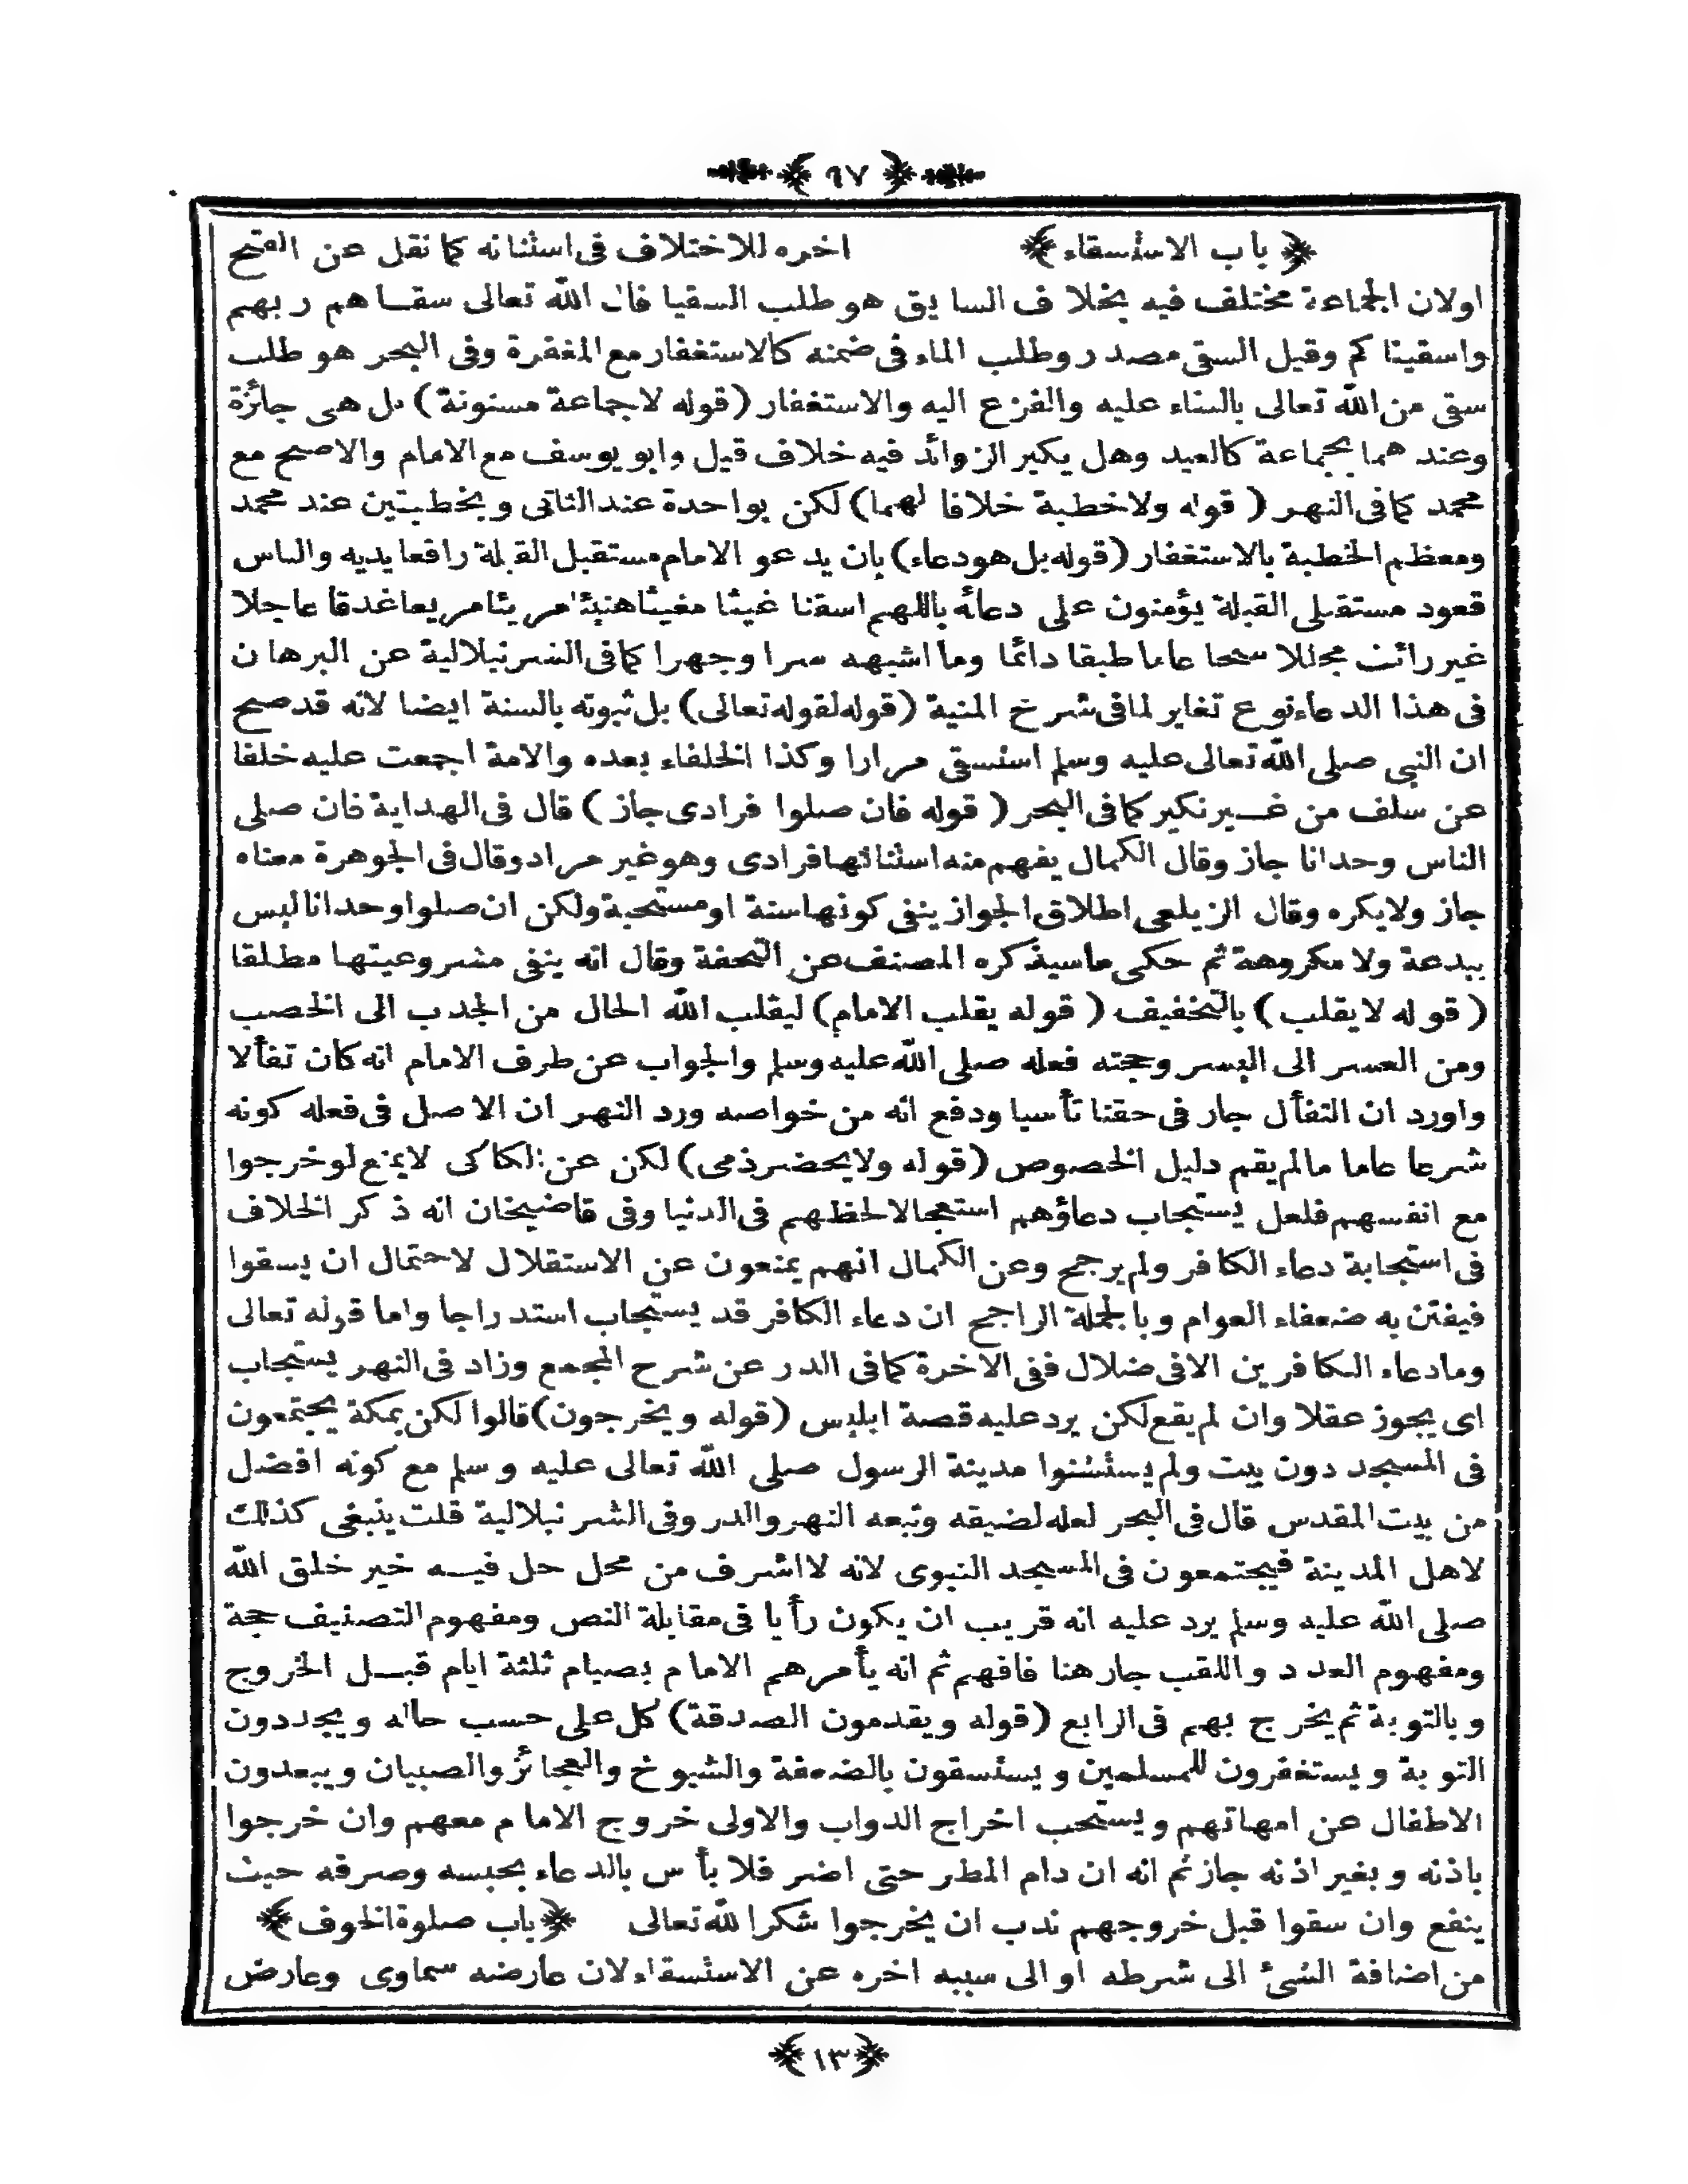 ﴿ ٩٧ ﴾
﴿ باب الاستسقاء ﴾ اخره للاختلاف فى استنانه كما نقل عن الفتح
اولان الجماعة مختلف فيه بخلاف السابق هو طلب السقيا قال الله تعالى سقاهم ربهم
واسقيناكم وقيل السقى مصدر وطلب الماء فى ضمنه كالاستغفار مع المغفرة وفى البحر هو طلب
سقى من الله تعالى بالثناء عليه والفزع اليه والاستغفار (قوله لا جماعة مسنونة) بل هى جائزة
وعندهما بجماعة كالعيد وهل يكبر الزوائد فيه خلاف قيل وابو يوسف مع الامام والاصح مع
محمد كما فى النهر (قوله ولا خطبة خلافا لهما) لكن بواحدة عند الثانى وبخطبتين عند محمد
ومعظم الخطبة بالاستغفار (قوله بل هو دعاء) بان يدعو الامام مستقبل القبلة رافعا يديه والناس
قعود مستقبلى القبلة يؤمنون على دعائه باللهم اسقنا غيثا مغيثا هنيئا مريئا مريعا غدقا عاجلا
غير رائث مجللا سحا عاما طبقا دائما وما اشبهه سرا وجهرا كما فى الشرنبلالية عن البرهان
فى هذا الدعاء نوع تغاير لما فى شرح المنية (قوله لقوله تعالى) بل ثبوته بالسنة ايضا لانه قد صح
ان النبى صلى الله تعالى عليه وسلم استسقى مرارا وكذا الخلفاء بعده والامة اجمعت عليه خلفا
عن سلف من غير نكير كما فى البحر (قوله فان صلوا فرادى جاز) قال فى الهداية فان صلى
الناس وحدانا جاز وقال الكمال يفهم منه استنانها فرادى وهو غير مراد وقال فى الجوهرة معناه
جاز ولايكره وقال الزيلعى اطلاق الجواز ينفى كونها سنة او مستحبة ولكن ان صلوا وحدانا ليس
ببدعة ولا مكروهة ثم حكى ما سيذكره المصنف عن التحفة وقال انه ينفى مشروعيتها مطلقا
(قوله لا يقلب) بالتخفيف (قوله يقلب الامام) ليقلب الله الحال من الجدب الى الخصب
ومن العسر الى اليسر وحجته فعله صلى الله عليه وسلم والجواب عن طرف الامام انه كان تفألا
واورد ان التفأل جار فى حقنا تأسيا ودفع انه من خواصه ورد النهر ان الاصل فى فعله كونه
شرعا عاما مالم يقم دليل الخصوص (قوله ولايحضر ذمى) لكن عن الكاكى لايمنع لو خرجوا
مع انفسهم فلعل يستجاب دعاؤهم استعجالا لحظهم فى الدنيا وفى قاضيخان انه ذكر الخلاف
فى استجابة دعاء الكافر ولم يرجح وعن الكمال انهم يمنعون عن الاستقلال لاحتمال ان يسقوا
فيفتن به ضعفاء العوام وبالجملة الراجح ان دعاء الكافر قد يستجاب استدراجا واما قوله تعالى
ومادعاء الكافرين الا فى ضلال ففى الاخرة كما فى الدر عن شرح المجمع وزاد فى النهر يستجاب
اى يجوز عقلا وان لم يقع لكن يرد عليه قصة ابليس (قوله ويخرجون) قالوا لكن بمكة يجتمعون
فى المسجد دون بيت ولم يستثنوا مدينة الرسول صلى الله تعالى عليه وسلم مع كونه افضل
من بيت المقدس قال فى البحر لعله لضيقه وتبعه النهر والدر وفى الشرنبلالية قلت ينبغى كذلك
لاهل المدينة فيجتمعون فى المسجد النبوى لانه لا اشرف من محل حل فيه خير خلق الله
صلى الله عليه وسلم يرد عليه انه قريب ان يكون رأيا فى مقابلة النص ومفهوم التصنيف حجة
ومفهوم العدد واللقب جار هنا فافهم ثم انه يأمرهم الامام بصيام ثلثة ايام قبل الخروج
وبالتوبة ثم يخرج بهم فى الرابع (قوله ويقدمون الصدقة) كل على حسب حاله ويجددون
التوبة ويستغفرون للمسلمين ويستسقون بالضعفة والشيوخ والعجائز والصبيان ويبعدون
الاطفال عن امهاتهم ويستحب اخراج الدواب والاولى خروج الامام معهم وان خرجوا
باذنه وبغير اذنه جاز ثم انه ان دام المطر حتى اضر فلا بأس بالدعاء بحبسه وصرفه حيث
ينفع وان سقوا قبل خروجهم ندب ان يخرجوا شكرا لله تعالى ﴿ باب صلوة الخوف ﴾
من اضافة الشئ الى شرطه او الى سببه اخره عن الاستسقاء لان عارضه سماوى وعارض
﴿ ١٣ ﴾